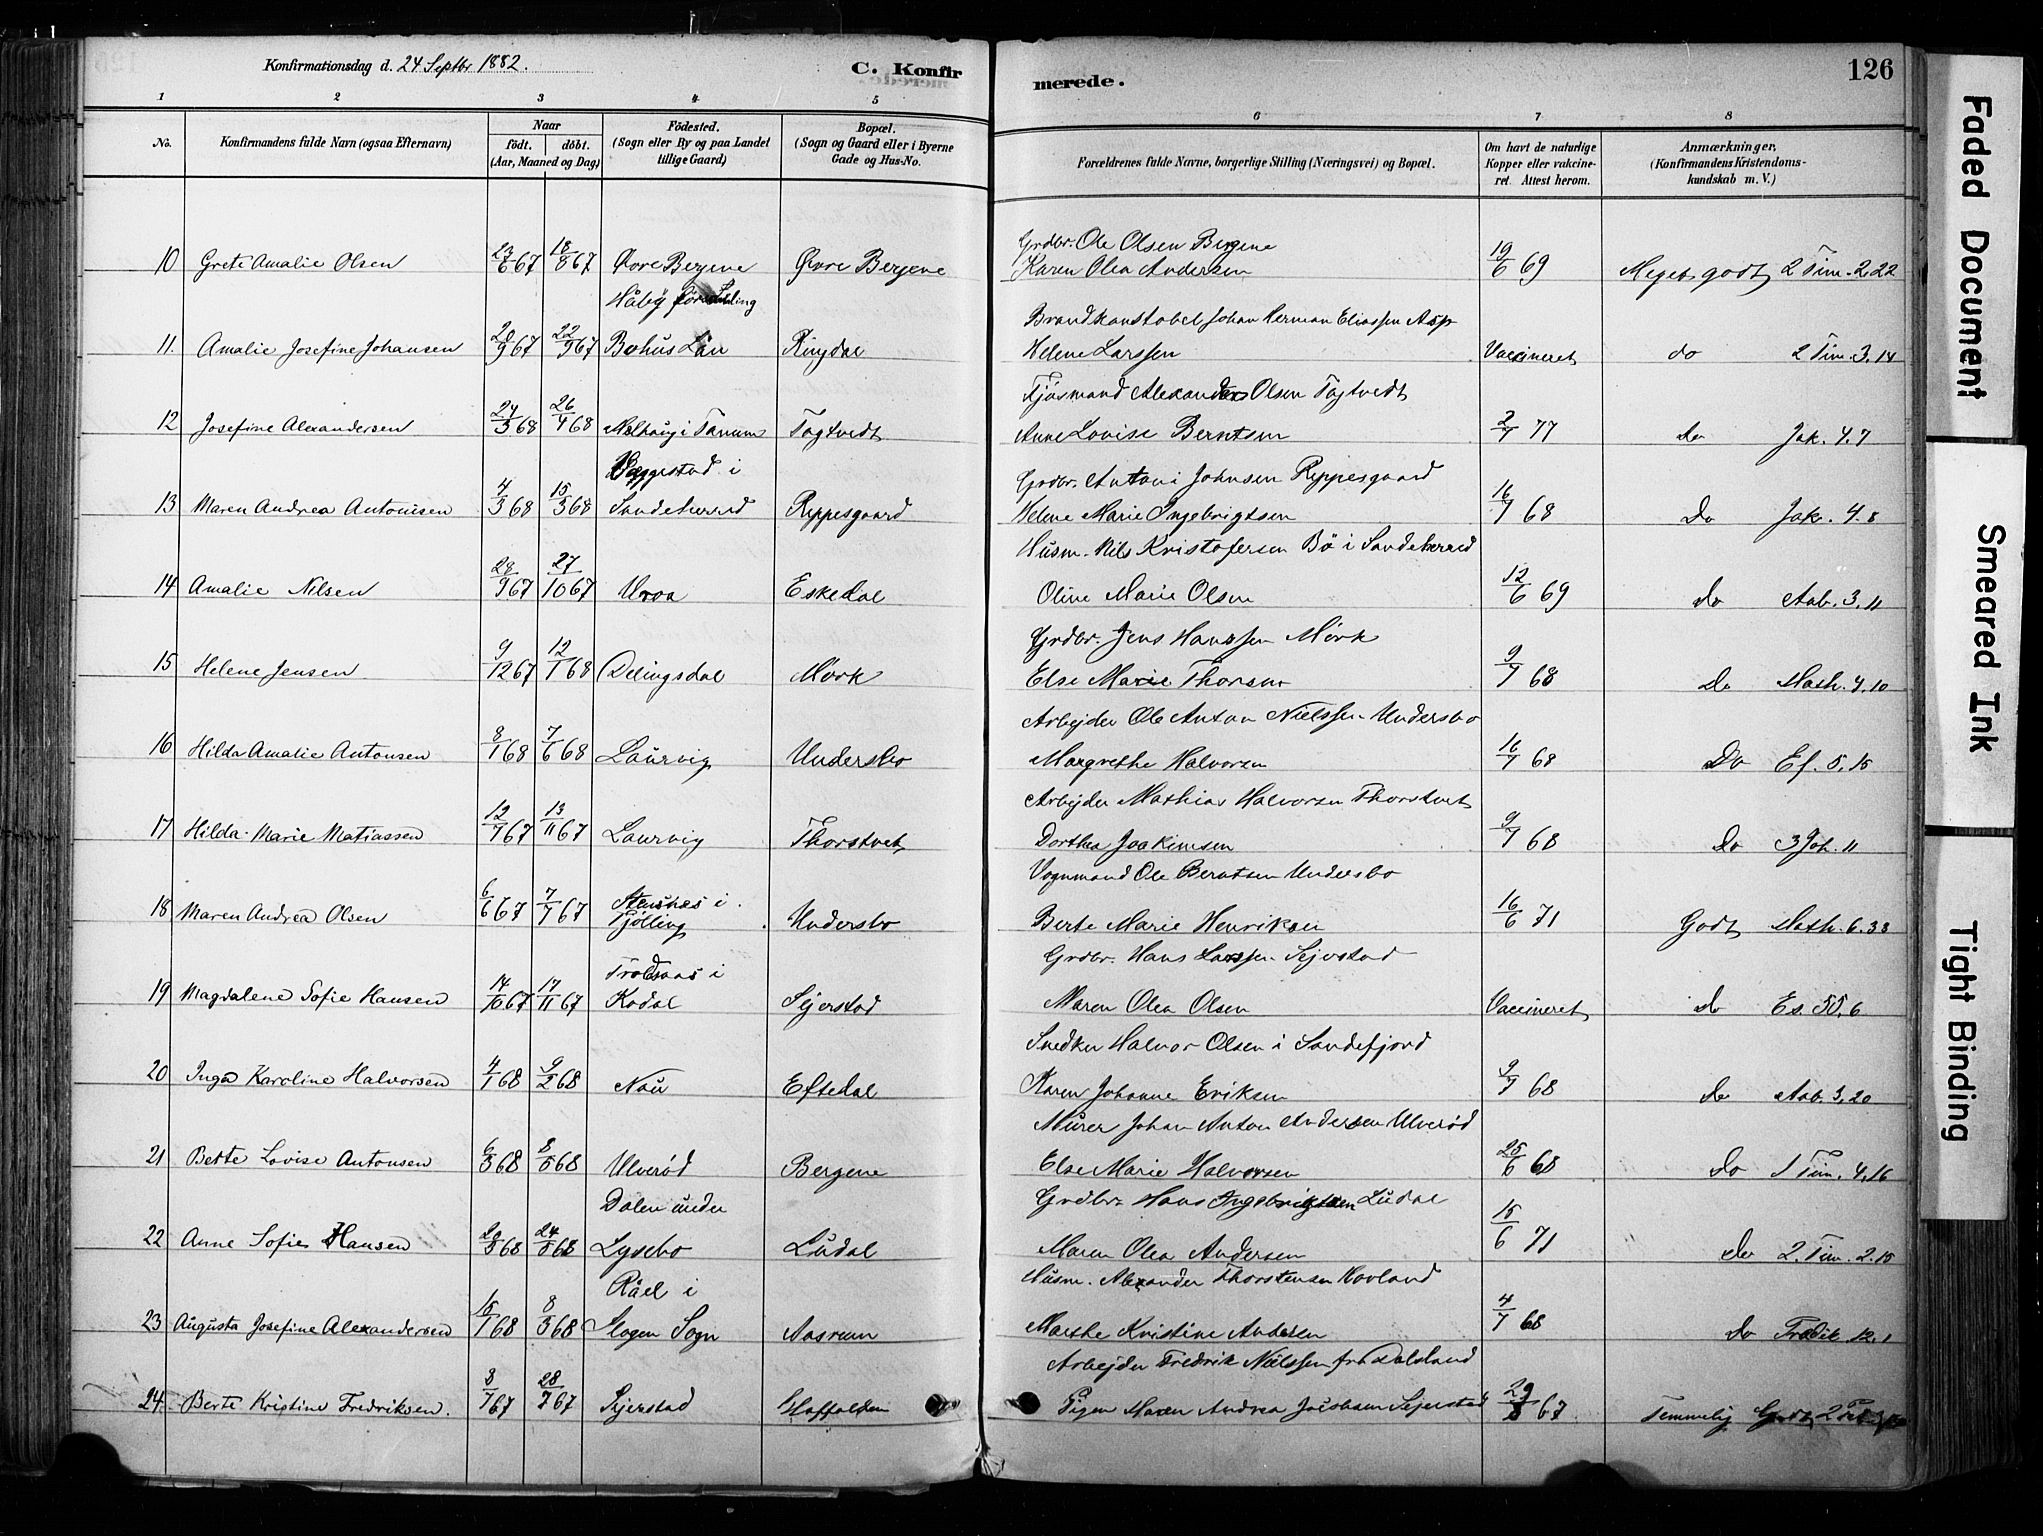 Konfirmationsdag d. 24 Septbr 1882.
C. Konfir
merede.
126
1 2 3 4 5 6 7 8
No.
Konfirmandens fulde Navn (ogsaa Efternavn)
Naar
født. døbt.
(Aar, Maaned og Dag)
Fødested.
(Sogn eller By og paa Landet
tillige Gaard)
Bopæl.
(Sogn og Gaard eller i Byerne
Gade og Hus-No.
Forældrenes fulde Navne, borgerlige Stilling (Næringsvei) og Bopæl.
Om havt de naturlige
Kopper eller vakcine-
ret. Attest herom.
Anmærkninger.
(Konfirmandens Kristendoms-
kundskab m. V.)
Grdbr. Ole Olsen Bergene
10 Grete Amalie Olsen 23/6 67 18/8 67 Øvre Bergene Øvre Bergene Karen Olea Andersen 19/6 69 Meget godt 2 Tim. 2.22
Håby
Brandkonstabel Johan Herman Eliassen Asp
11. Amalie Josefine Johansen 20/9 67 22/9 67 Bohus Län Ringdal Helene Larssen Vaccineret do 2 Tim. 3.14
Fjøsmand Alexander Olsen Tagtvedt
12 Josefine Alexandersen 24/3 68 26/4 68 i Tanum Tagtvedt Anne Lovise Berntsen 2/7 77 do Jak. 4.7
Vaggestad i
Grdbr. Antoni Johnsen Rippesgaard
13 Maren Andrea Antonisen 4/3 68 15/3 68 Sandeherred Rippesgaard Helene Marie Ingebrigtsen 16/7 68 Do Jak. 4.8
Husm. Nils Kristofersen Bø i Sandeherred
14 Amalie Nilsen 28/9 67 27/10 67 Uroa Eskedal Oline Marie Olsen 12/6 69 do Aab. 3.11
Grdbr. Jens Hanssen Mørk
15 Helene Jensen 9/12 67 12/1 68 Delingsdal Mørk Else Marie Thorsen 9/7 68 Do Math. 4.10
Arbejder Ole Anton Nielssen Undersbo
16 Hilda Amalie Antonsen 8/1 68 7/6 68 Laurvig Undersbo Margrethe Halvorsen 16/7 68 Do Ef. 5.15
Arbejder Mathias Halvorsen Thorstvet
17 Hilda Marie Matiassen 12/7 67 13/11 67 Laurvig Thorstvet Dorthea Joakimsen 9/7 68 do 3 Joh. 11
Vognmand Ole Berntsen Undersbo
18 Maren Andrea Olsen 6/6 67 7/7 67 Stensnes i Undersbo Berte Marie Henriksen 16/6 71 Godt Math. 6.33
Tjølling
Grdbr. Hans Larssen Sejerstad
Troldsaas i
19 Magdalene Sofie Hansen 14/10 67 17/11 67 Kodal Sejerstad Maren Olea Olsen Vaccineret do Es. 55.6
Snedker Halvor Olsen i Sandefjord
20 Inga Karoline Halvorsen 4/1 68 9/2 68 Nau Eftedal Karen Johanne Eriksen 9/7 68 do Aab. 3.20
Murer Johan Anton Andersen Ulverød
21 Berte Lovise Antonsen 6/3 68 8/5 68 Ulverød Bergene Else Marie Halvorsen 25/6 68 do 1 Tim. 4.16
Dalen under
Grdbr. Hans Ingebrigtsen Ludal
22 Anne Sofie Hansen 20/3 68 24/5 68 Lysebo Ludal Maren Olea Andersen 15/6 71 do 2. Tim. 2.15
Råel i
Husm. Alexander Thorstensen Hovland
23 Augusta Josefine Alexandersen 15/1 68 8/3 68 Slagen Sogn Aasrum Marthe Kristine Andersen 4/7 68 do Prædik. 12.1
Arbejder Fredrik Nielssen fra Dalsland
24. Berte Kristine Fredriksen. 3/7 67 28/7 67 Sejerstad Pigen Maren Andrea Jacobsen Sejerstad 29/8 67 Temmelig Godt
Faded Document
Smeared Ink
Tight Binding